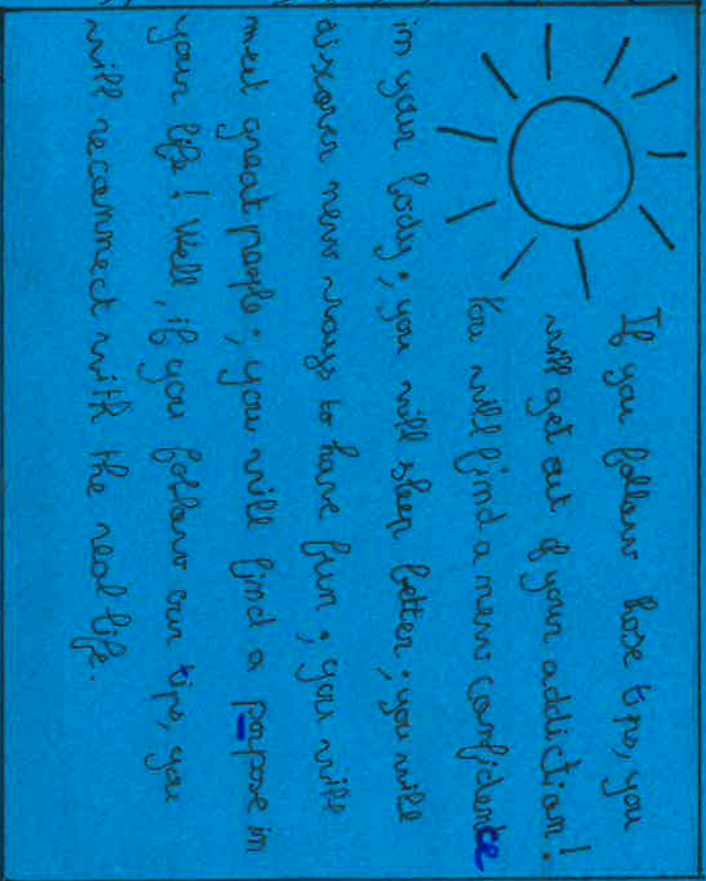 If you follow those tips, you
will get out of your addiction!
You will find a new confidence
in your body; you will sleep better; you will
discover new ways to have fun; you will
meet great people; you will find a papose in
your life! Well, if you follow our tips, you
will reconnect with the real life.